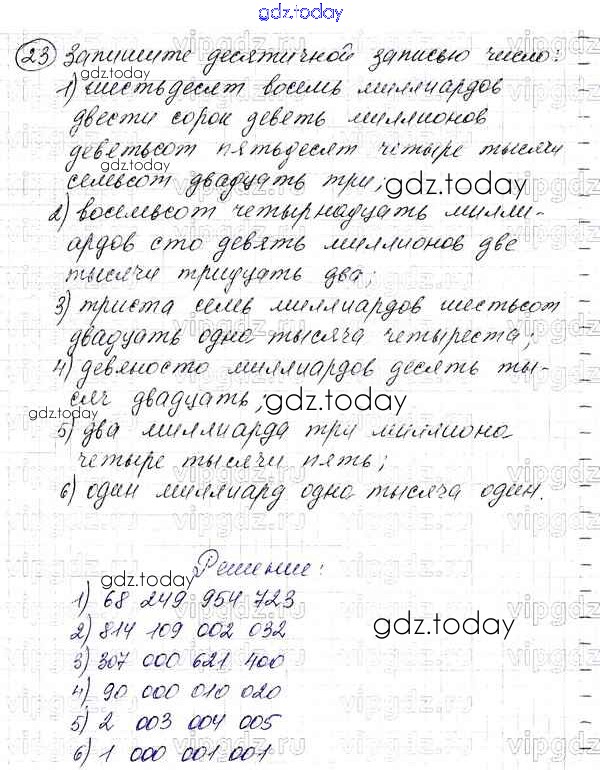 gdz.today
23 Запишите десятичной записью число:
gdz.today
1) шестьдесят восемь миллиардов
двести сорок деветь миллионов
деветьсот пятьдесят четыре тысячи
семьсот двадцать три;
gdz.today
2) восемьсот четырнадцать милли-
ардов сто девять миллионов две
тысячи тридцать два;
3) триста семь миллиардов шестьсот
двадцать одна тысяча четыреста;
4) девяносто миллиардов десять ты-
сяч двадцать;
gdz.today
gdz.today
5) два миллиарда три миллиона
четыре тысячи пять;
6) один миллиард одна тысяча один.
Решение:
gdz.today
1) 68 249 954 723
2) 814 109 002 032
gdz.today
3) 307 000 621 400
4) 90 000 010 020
5) 2 003 004 005
6) 1 000 001 001